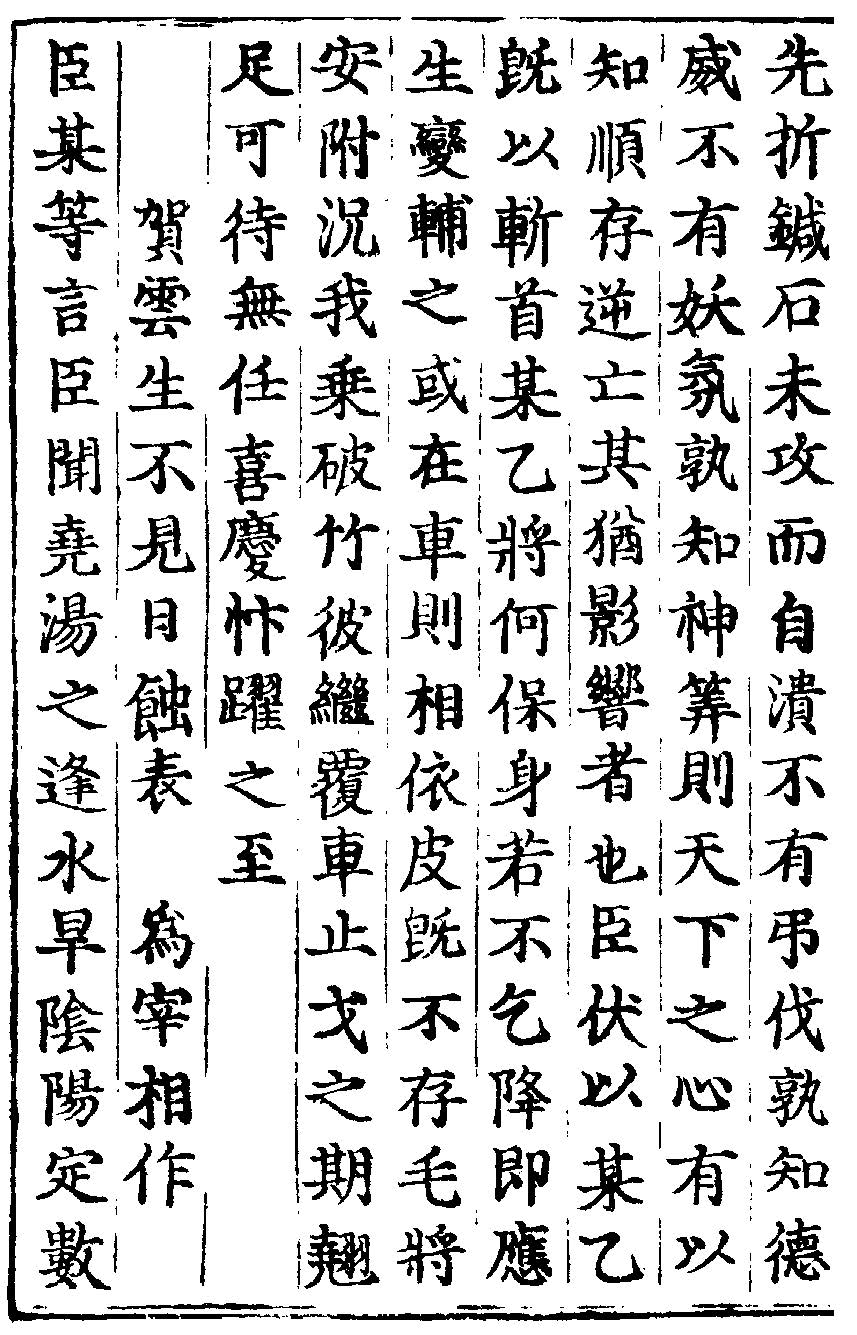 先折鍼石未攻而自潰不有弔伐孰知德
威不有妖氛孰知神筭則天下之心有以
知順存逆亡其猶影響者也臣伏以某乙
旣以斬首某乙將何保身若不乞降即應
生變輔之或在車則相依皮旣不存毛將
安附況我乗破竹彼繼覆車止戈之期翹
足可待無任喜慶忭躍之至
賀雲生不見日蝕表 爲宰相作
臣某等言臣聞堯湯之逢水旱陰陽定數